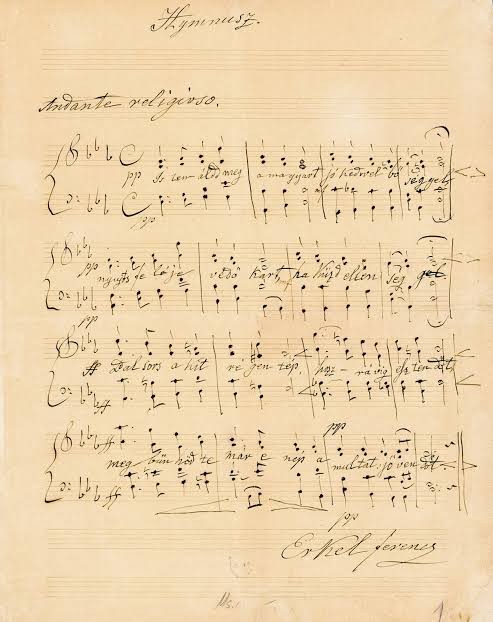 Hymnusz.
Andante religioso.
pp Is ten áldd meg a magyart jó kedvvel bő séggel,
pp
pp nyujts fe lé je védő kart, ha küzd ellen ség gel
pp
ff Bal sors a kit ré gen tép, hoz rá víg esz ten dőt,
ff
pp
ff meg bűn hőd te már e nép a multat jöven dőt
ff
pp
Erkel Ferencz
Ms.